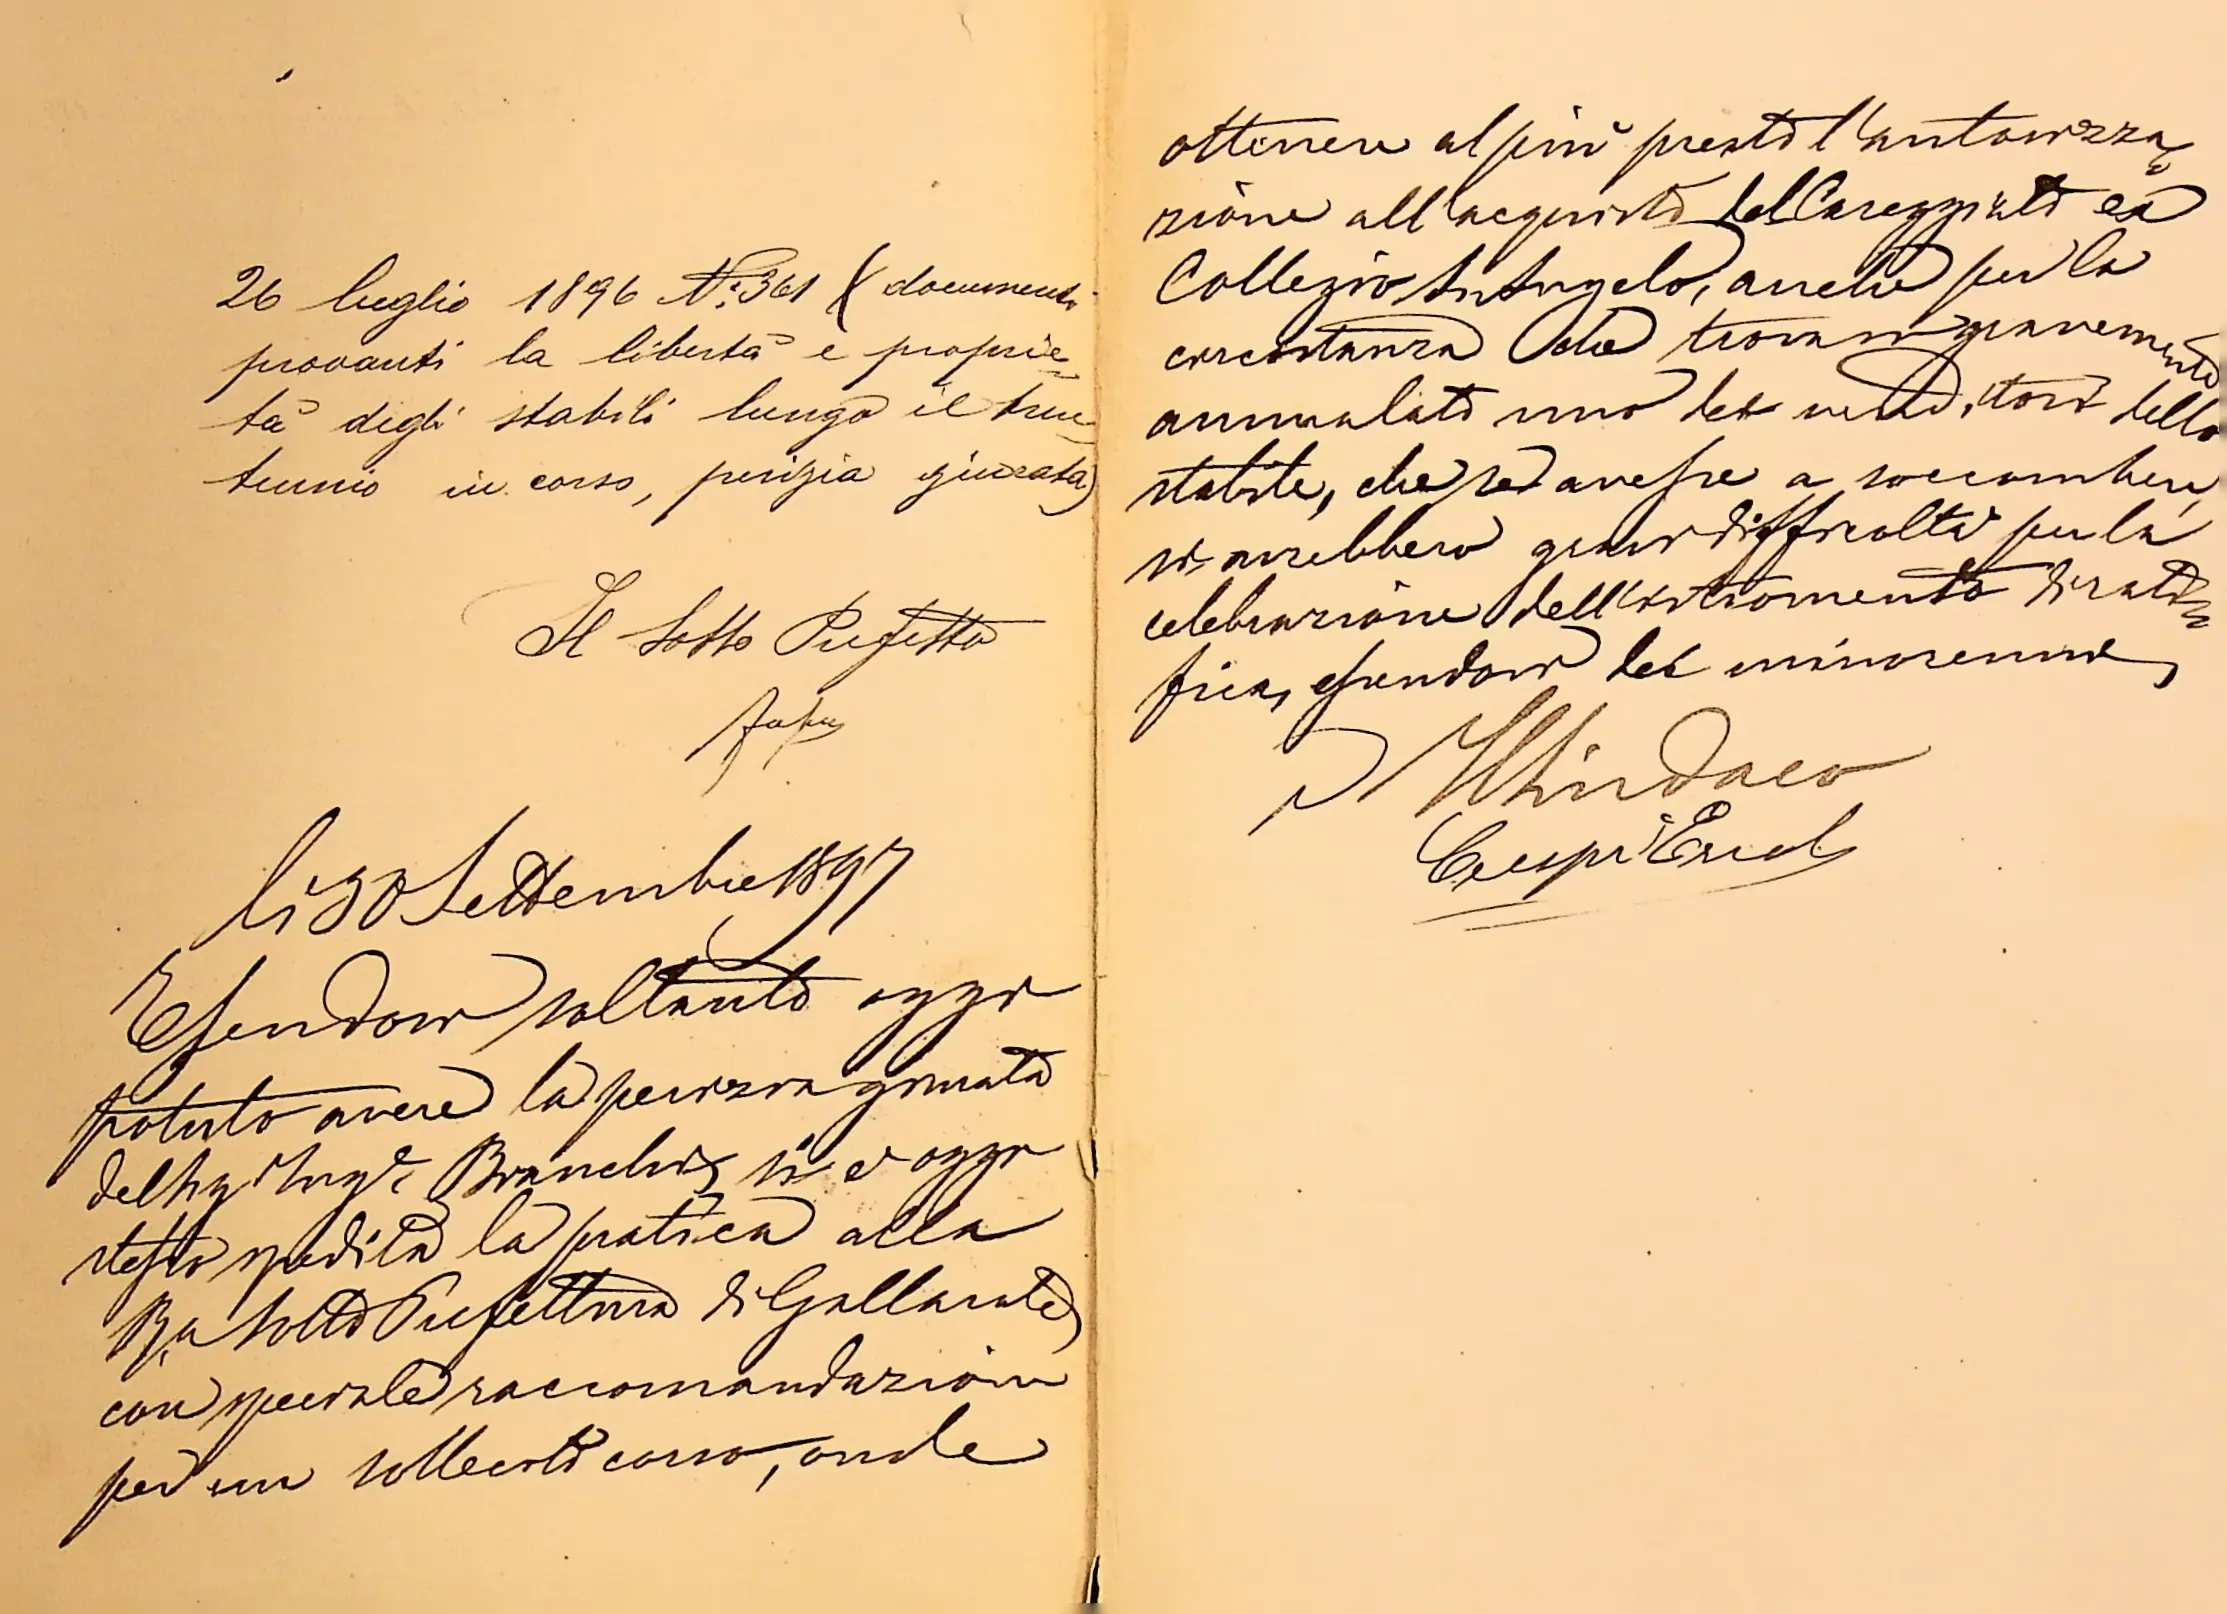 26 luglio 1896 N.° 361 (documenti
provanti la libertà e proprie=
tà degli stabili lungo il tren
tennio in corso, perizia giurata)
Il Sotto Prefetto
li 30 Settembre 1897
Essendosi soltanto oggi
potuto avere la perizia giurata
del Sig. Ing.e Bianchi, si è oggi
stesso spedita la pratica alla
R.a Sotto Prefettura di Gallarate,
con speciale raccomandazione
per un sollecito corso, onde
ottenere al più presto l'autorizza=
zione all'acquisto del Caseggiato ex
Collegio St Angelo, anche per la
circostanza che trovasi gravemente
ammalato uno dei venditori dello
stabile, che se avesse a soccombere,
si avrebbero gravi difficoltà per la
celebrazione dell'istromento di rati=
fica, essendovi dei minorenni,
Il Sindaco
Crespi Ercole